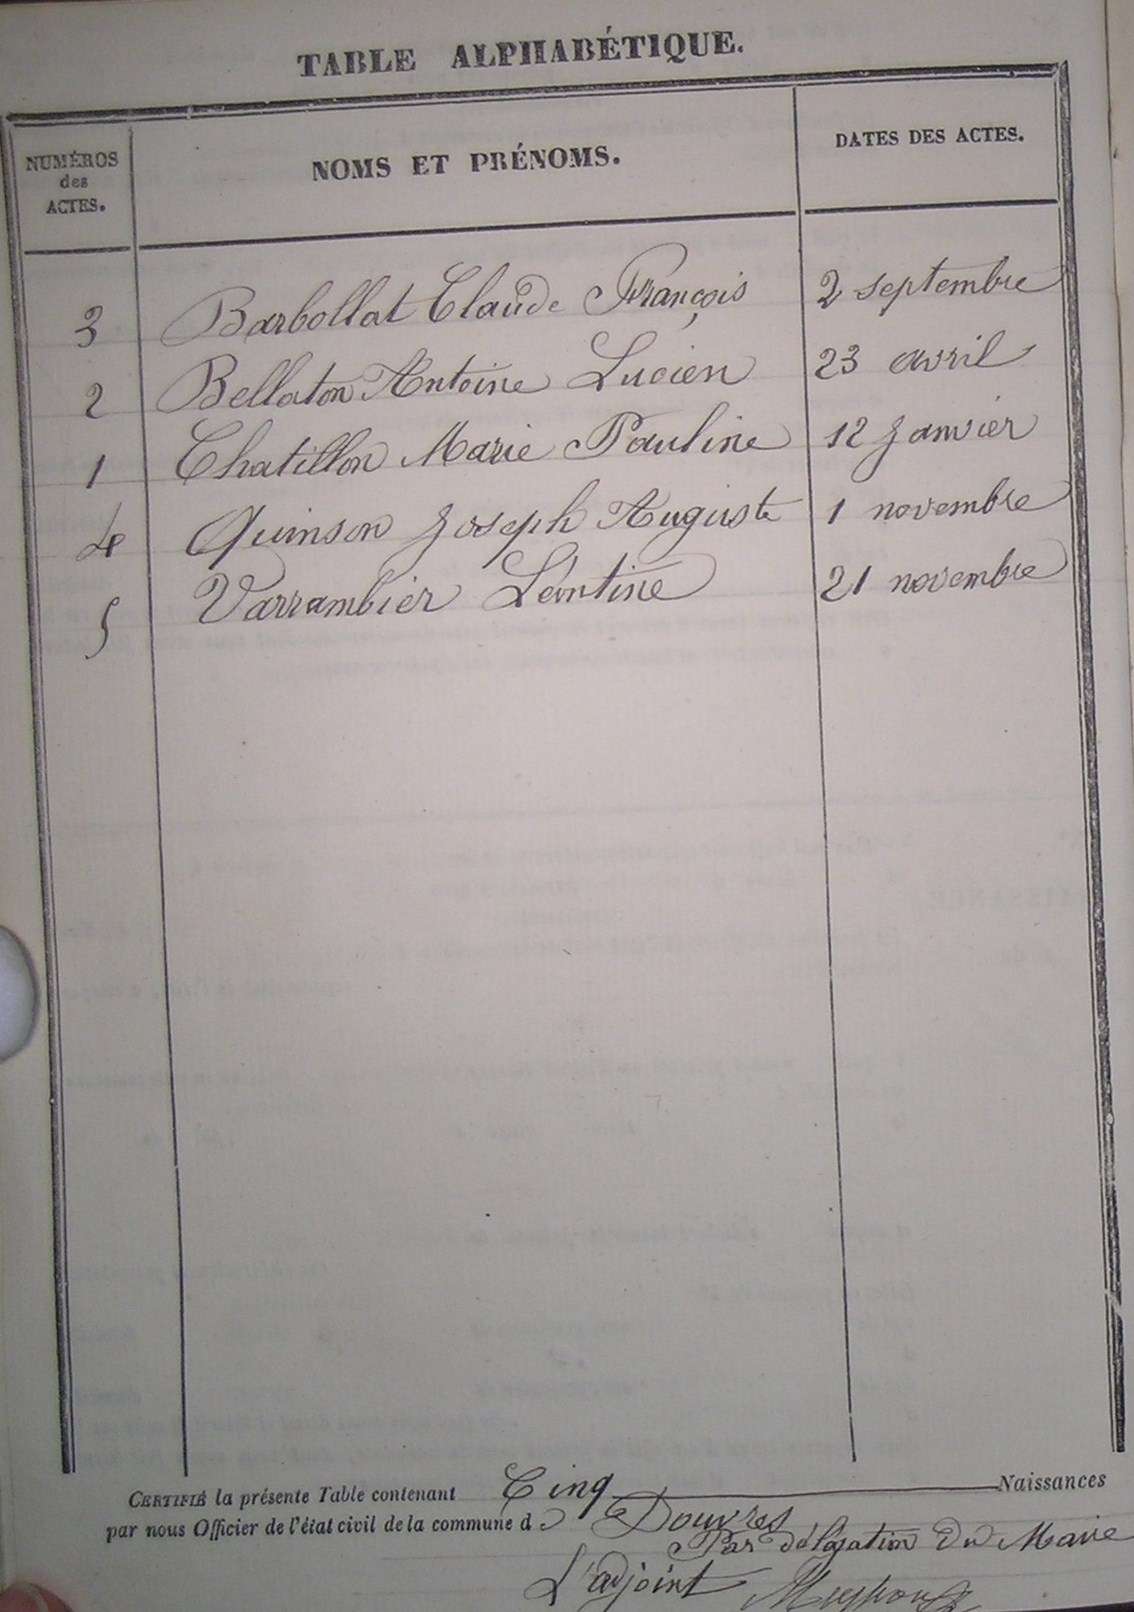 TABLE ALPHABÉTIQUE.
NUMÉROS
des
ACTES.
NOMS ET PRÉNOMS.
DATES DES ACTES.
3 Barbollat Claude François 2 septembre
2 Bellaton Antoine Lucien 23 avril
1 Chatillon Marie Pauline 12 Janvier
4 Quinson Joseph Auguste 1 novembre
5 Varrambier Léontine 21 novembre
CERTIFIÉ la présente Table contenant Cinq Naissances
par nous Officier de l'état civil de la commune de Douvres
Par délégation du Maire
L'adjoint